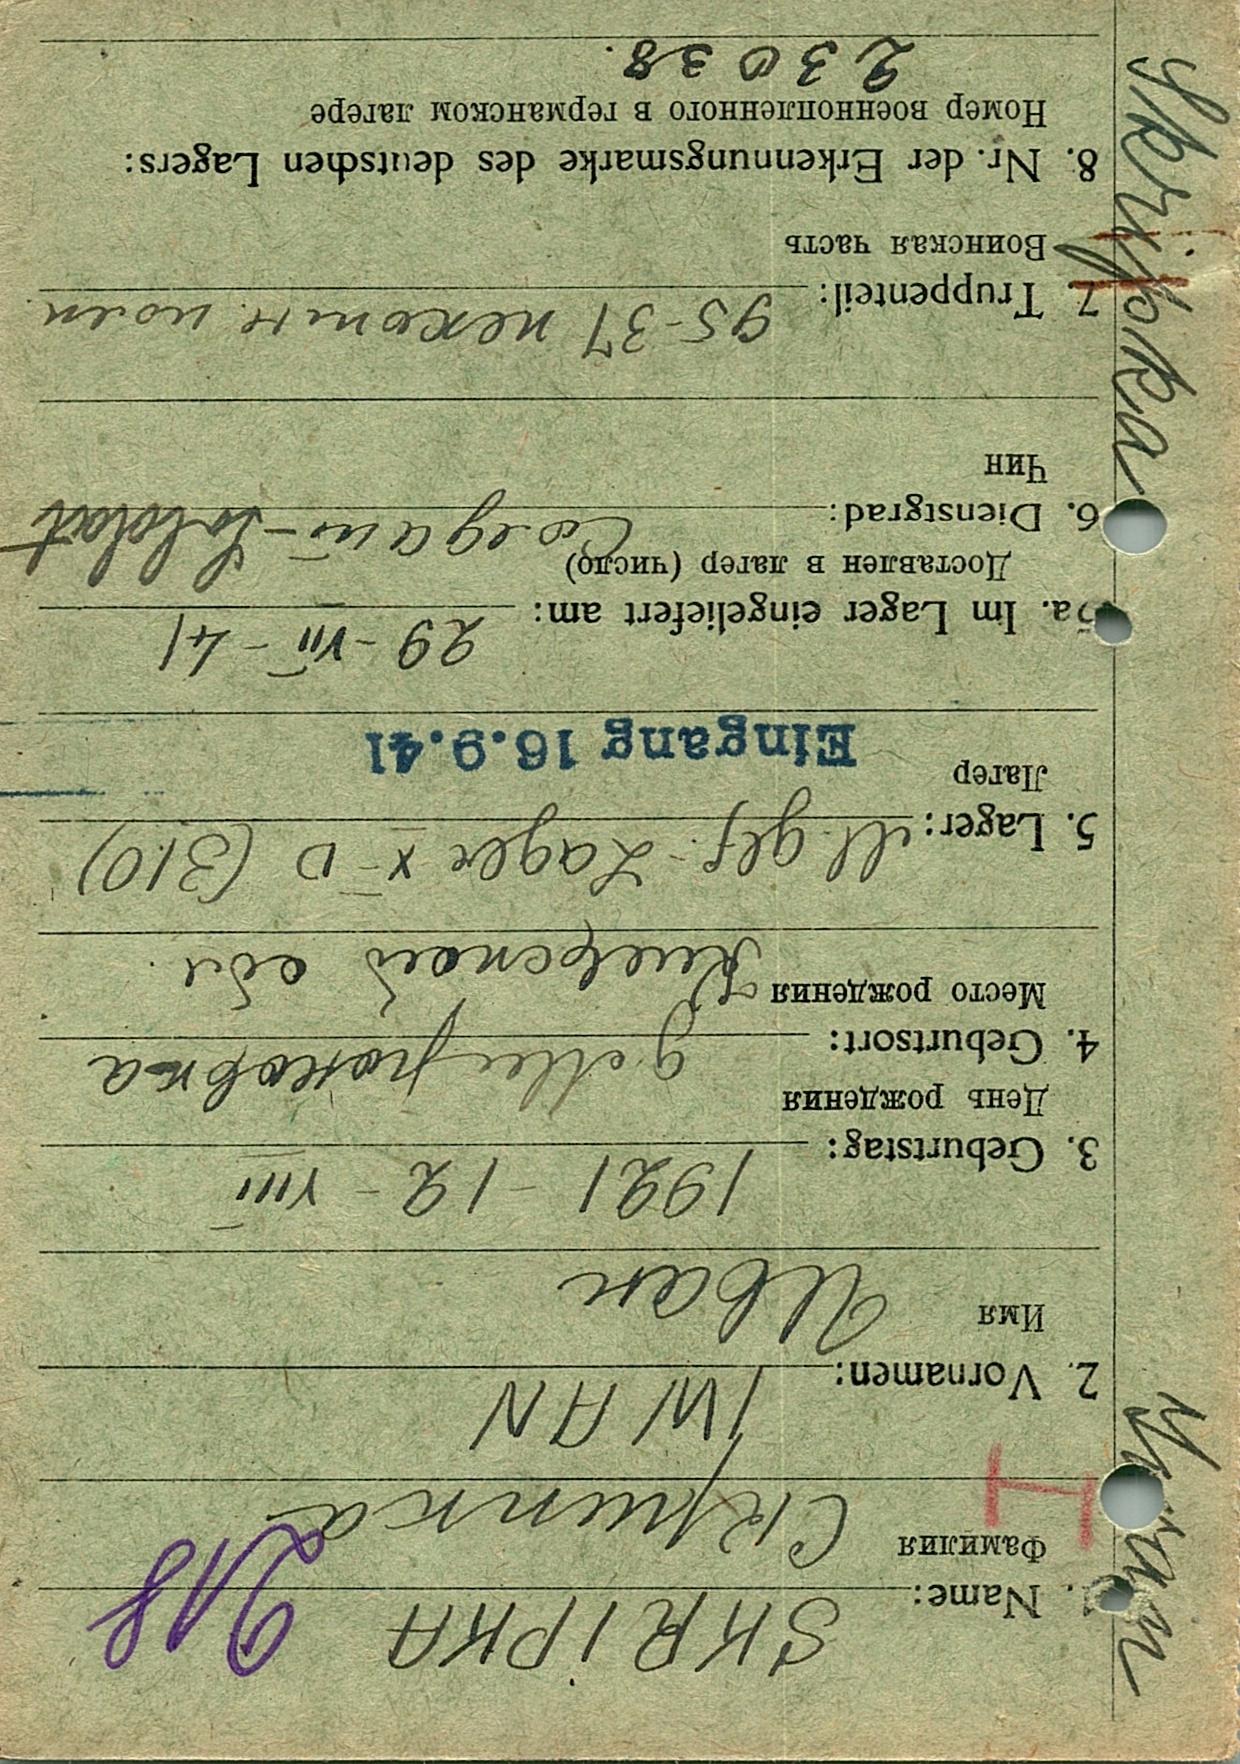 SKRIPKA
918
1. Name:
Фамилия
Скрипка
H
IWAN
2. Vornamen:
Имя
Иван
1921 - 12 - VIII
3. Geburtstag:
День рождения
4. Geburtsort:
Место рождения
Киевской обл.
5. Lager: gef. Lager X-D (310)
Лагер
Eingang 16.9.41
29-VII-41
5a. Im Lager eingeliefert am:
Доставлен в лагер (число)
6. Dienstgrad: Солдат - Soldat
Чин
95-37
7. Truppenteil:
Воинская часть
8. Nr. der Erkennungsmarke des deutschen Lagers:
Номер военнопленного в германском лагере
23038.
Skripka Iwan